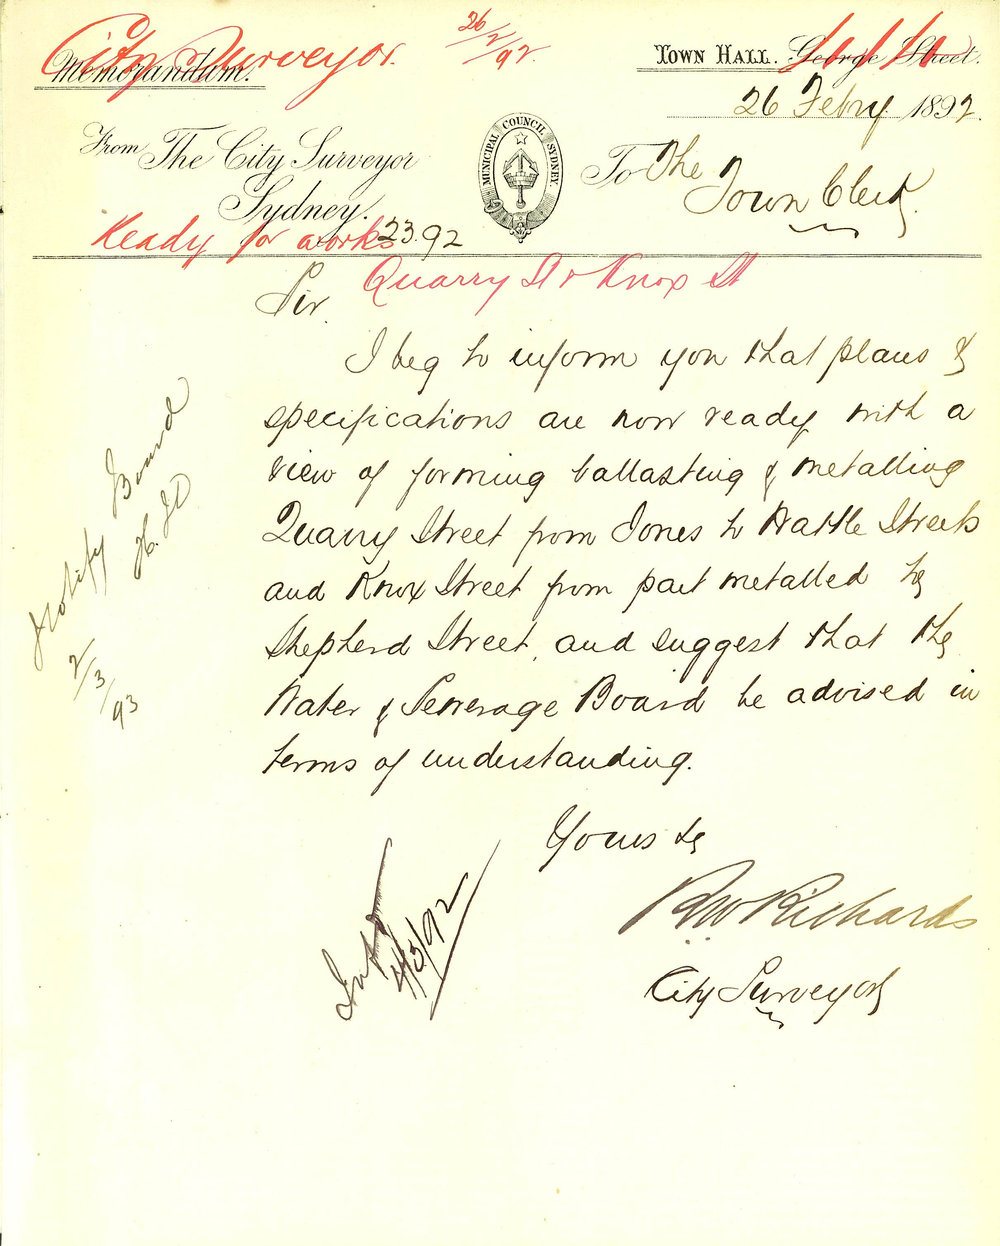 City Surveyor.
26/2/92.
Memorandum.
TOWN HALL. George Street.
26 Febry. 1892.
From The City Surveyor
Sydney.
MUNICIPAL COUNCIL SYDNEY
To The
Town Clerk.
Ready for works
23.92
Quarry St & Knox St
Sir
I beg to inform you that plans &
specifications are now ready with a
view of forming ballasting & metalling
Quarry Street from Jones to Wattle Streets
and Knox Street from part metalled to
Shepherd Street, and suggest that the
Water & Sewerage Board be advised in
terms of understanding.
Yours &c
R W Richards
City Surveyor
Notify Board
2/3/93
4/3/92